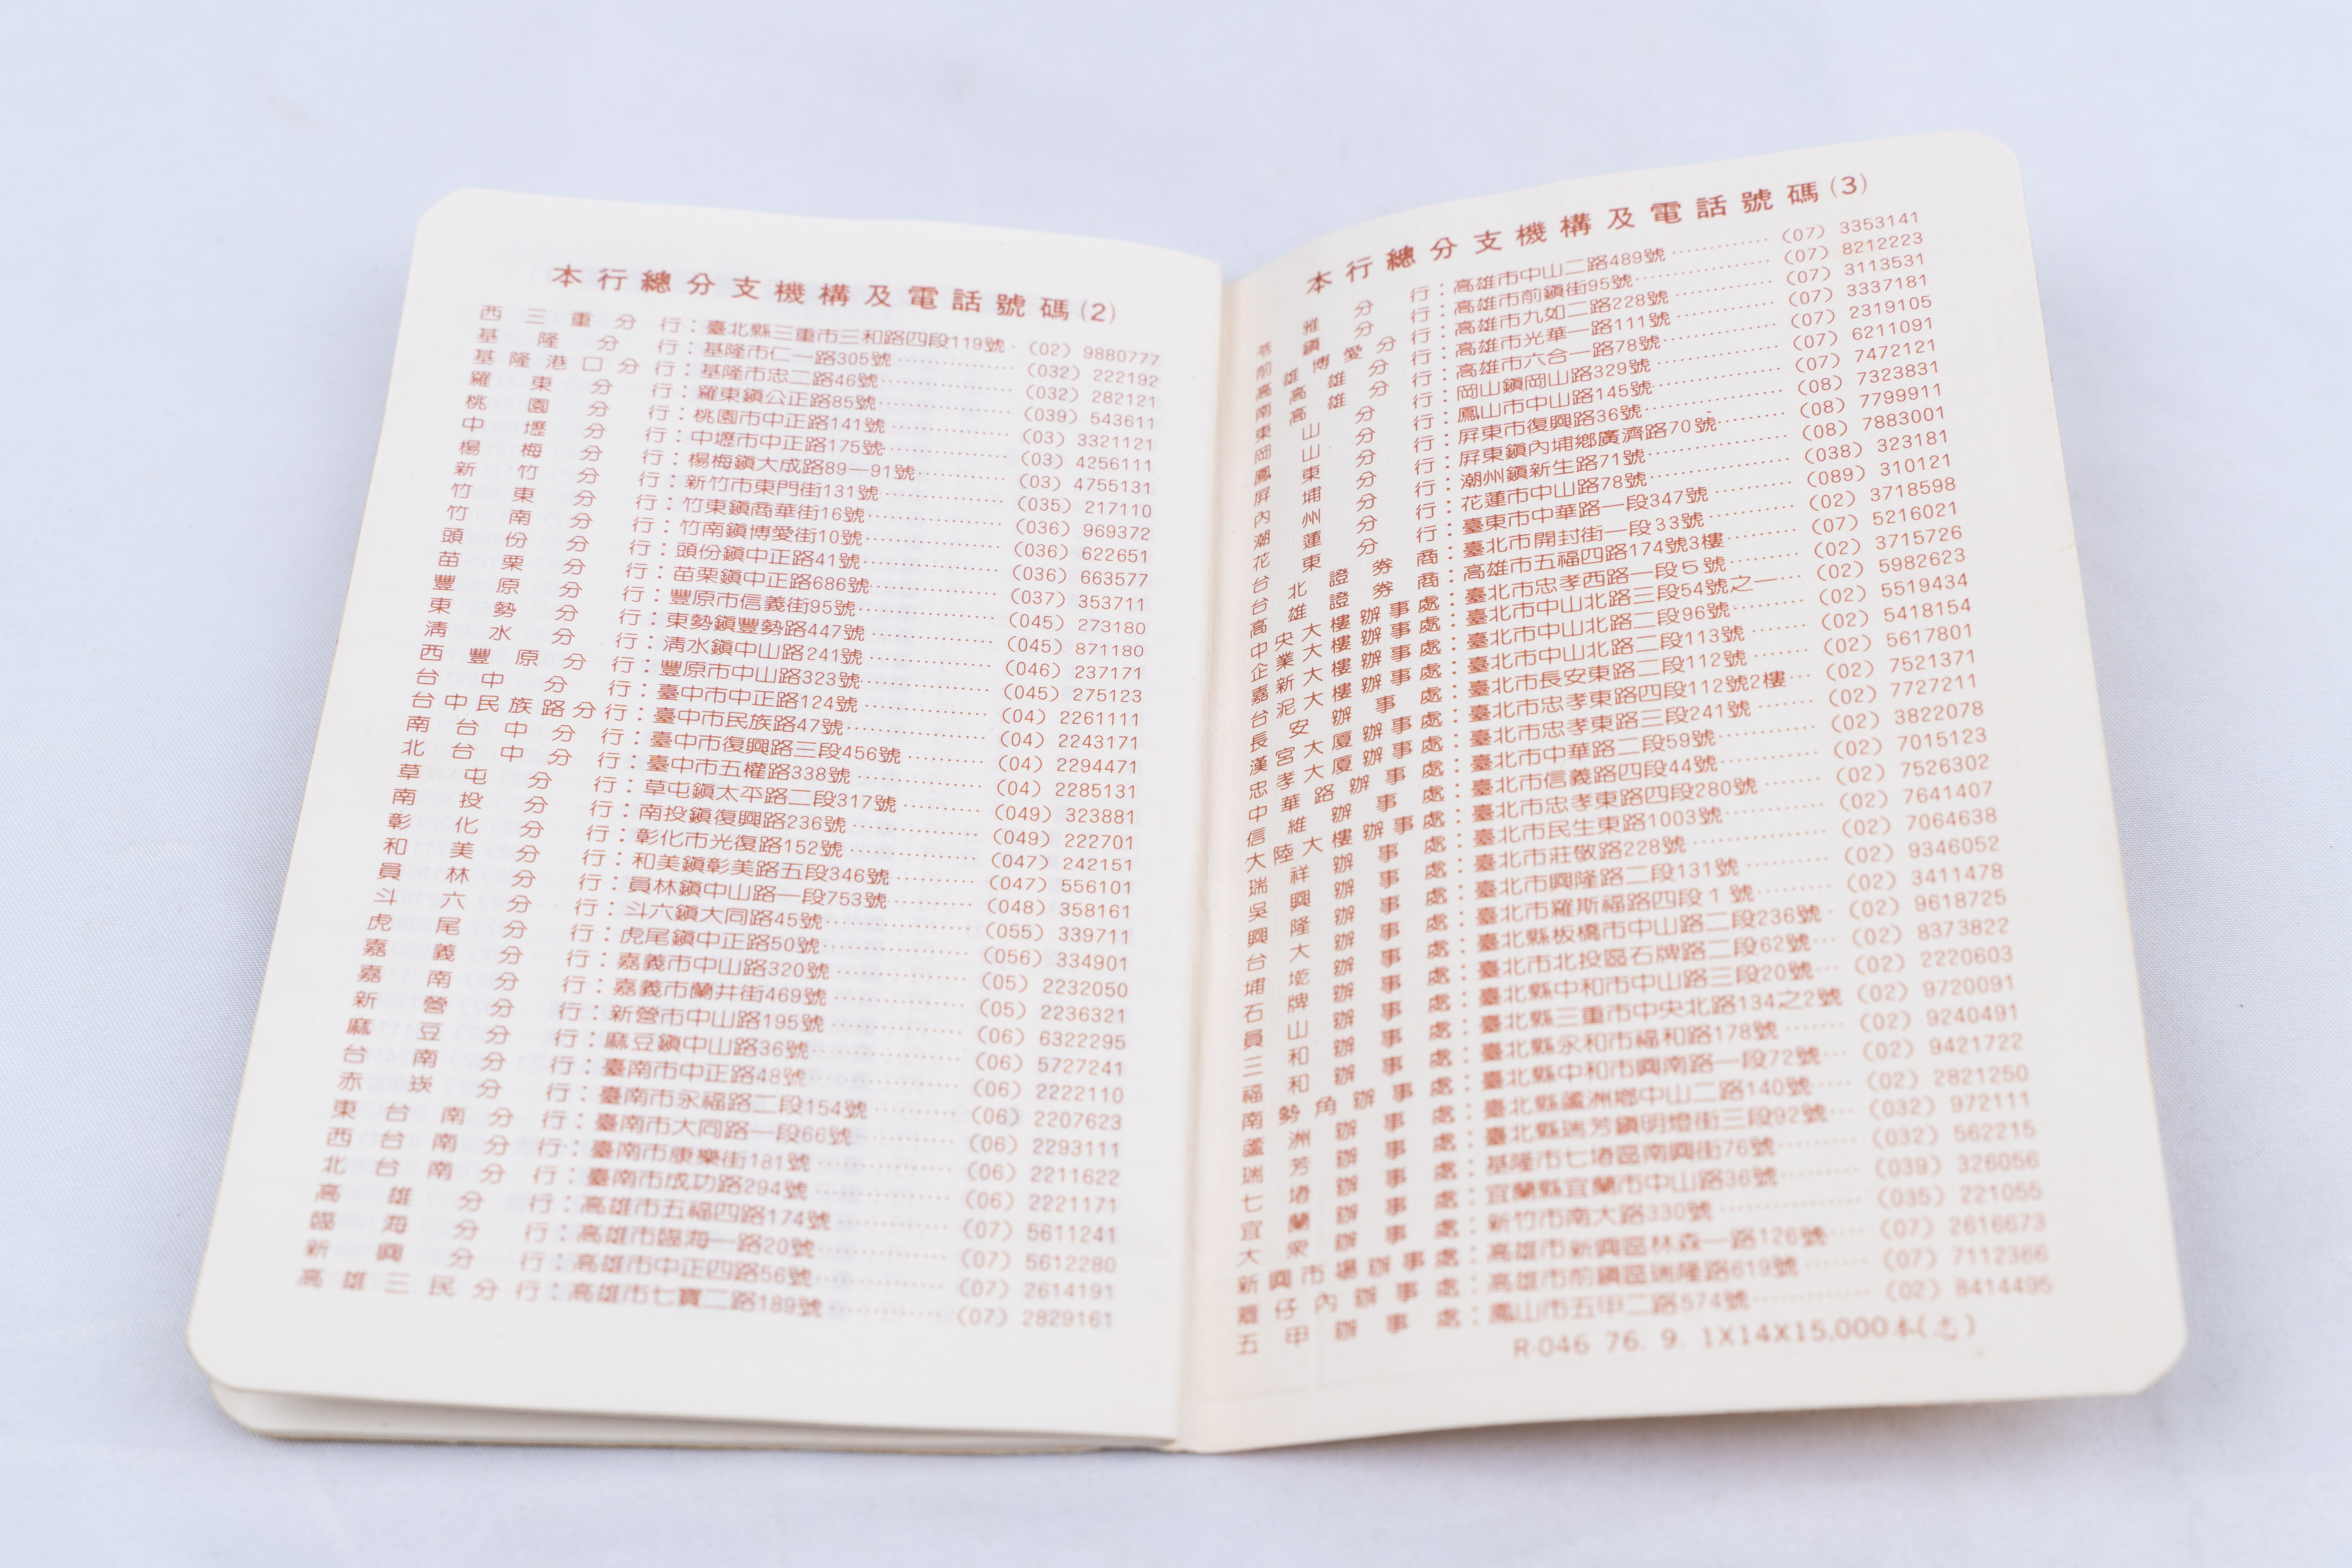 本行總分支機構及電話號碼(2)
西三重分行：臺北縣三重市三和路四段119號·(02) 9880777
基隆分行：基隆市仁一路305號……(032) 222192
基隆港口分行：基隆市忠二路46號……(032) 282121
羅東分行：羅東鎮公正路85號……(039) 543611
桃園分行：桃園市中正路141號……(03) 3321121
中壢分行：中壢市中正路175號……(03) 4256111
楊梅分行：楊梅鎮大成路89—91號……(03) 4755131
新竹分行：新竹市東門街131號……(035) 217110
竹東分行：竹東鎮商華街16號……(036) 969372
竹南分行：竹南鎮博愛街10號……(036) 622651
頭份分行：頭份鎮中正路41號……(036) 663577
苗栗分行：苗栗鎮中正路686號……(037) 353711
豐原分行：豐原市信義街95號……(045) 273180
東勢分行：東勢鎮豐勢路447號……(045) 871180
清水分行：清水鎮中山路241號……(046) 237171
西豐原分行：豐原市中山路323號……(045) 275123
台中分行：臺中市中正路124號……(04) 2261111
台中民族路分行：臺中市民族路47號……(04) 2243171
南台中分行：臺中市復興路三段456號……(04) 2294471
北台中分行：臺中市五權路338號……(04) 2285131
草屯分行：草屯鎮太平路二段317號……(049) 323881
南投分行：南投鎮復興路236號……(049) 222701
彰化分行：彰化市光復路152號……(047) 242151
和美分行：和美鎮彰美路五段346號……(047) 556101
員林分行：員林鎮中山路一段753號……(048) 358161
斗六分行：斗六鎮大同路45號……(055) 339711
虎尾分行：虎尾鎮中正路50號……(056) 334901
嘉義分行：嘉義市中山路320號……(05) 2232050
嘉南分行：嘉義市蘭井街469號……(05) 2236321
新營分行：新營市中山路195號……(06) 6322295
麻豆分行：麻豆鎮中山路36號……(06) 5727241
台南分行：臺南市中正路48號……(06) 2222110
赤崁分行：臺南市永福路二段154號……(06) 2207623
東台南分行：臺南市大同路一段66號……(06) 2293111
西台南分行：臺南市康樂街181號……(06) 2211622
北台南分行：臺南市成功路294號……(06) 2221171
高雄分行：高雄市五福四路174號……(07) 5611241
臨海分行：高雄市臨海一路20號……(07) 5612280
新興分行：高雄市中正四路56號……(07) 2614191
高雄三民分行：高雄市七賢二路189號……(07) 2829161
本行總分支機構及電話號碼(3)
苓雅分行：高雄市中山二路489號……(07) 3353141
前鎮分行：高雄市前鎮街95號……(07) 8212223
高雄博愛分行：高雄市九如二路228號……(07) 3113531
南高雄分行：高雄市光華一路111號……(07) 3337181
東高雄分行：高雄市六合一路78號……(07) 2319105
岡山分行：岡山鎮岡山路329號……(07) 6211091
鳳山分行：鳳山市中山路145號……(07) 7472121
屏東分行：屏東市復興路36號……(08) 7323831
內埔分行：屏東鎮內埔鄉廣濟路70號……(08) 7799911
潮州分行：潮州鎮新生路71號……(08) 7883001
花蓮分行：花蓮市中山路78號……(038) 323181
台東分行：臺東市中華路一段347號……(089) 310121
台北證券商：臺北市開封街一段33號……(02) 3718598
高雄證券商：高雄市五福四路174號3樓……(07) 5216021
中央大樓辦事處：臺北市忠孝西路一段5號……(02) 3715726
企業大樓辦事處：臺北市中山北路三段54號之一…(02) 5982623
嘉新大樓辦事處：臺北市中山北路二段96號……(02) 5519434
台泥大樓辦事處：臺北市中山北路二段113號……(02) 5418154
長安辦事處：臺北市長安東路二段112號……(02) 5617801
漢宮大廈辦事處：臺北市忠孝東路四段112號2樓…(02) 7521371
忠孝大廈辦事處：臺北市忠孝東路三段241號……(02) 7727211
中華路辦事處：臺北市中華路二段59號……(02) 3822078
信維辦事處：臺北市信義路四段44號……(02) 7015123
大陸大樓辦事處：臺北市忠孝東路四段280號……(02) 7526302
瑞祥辦事處：臺北市民生東路1003號……(02) 7641407
吳興辦事處：臺北市莊敬路228號……(02) 7064638
興隆辦事處：臺北市興隆路二段131號……(02) 9346052
台大辦事處：臺北市羅斯福路四段1號……(02) 3411478
埔墘辦事處：臺北縣板橋市中山路二段236號·(02) 9618725
石牌辦事處：臺北市北投區石牌路二段62號…(02) 8373822
員山辦事處：臺北縣中和市中山路三段20號…(02) 2220603
三和辦事處：臺北縣三重市中央北路134之2號 (02) 9720091
福和辦事處：臺北縣永和市福和路178號……(02) 9240491
南勢角辦事處：臺北縣中和市興南路一段72號…(02) 9421722
蘆洲辦事處：臺北縣蘆洲鄉中山二路140號……(02) 2821250
瑞芳辦事處：臺北縣瑞芳鎮明燈街三段92號…(032) 972111
七堵辦事處：基隆市七堵區南興街76號……(032) 562215
宜蘭辦事處：宜蘭縣宜蘭市中山路36號……(039) 326056
大眾辦事處：新竹市南大路330號……(035) 221055
新興市場辦事處：高雄市新興區林森一路126號……(07) 2616673
仔內辦事處：高雄市前鎮區瑞隆路619號……(07) 7112366
五甲辦事處：鳳山市五甲二路574號……(02) 8414495
R-046 76. 9. 1X14X15,000本(志)